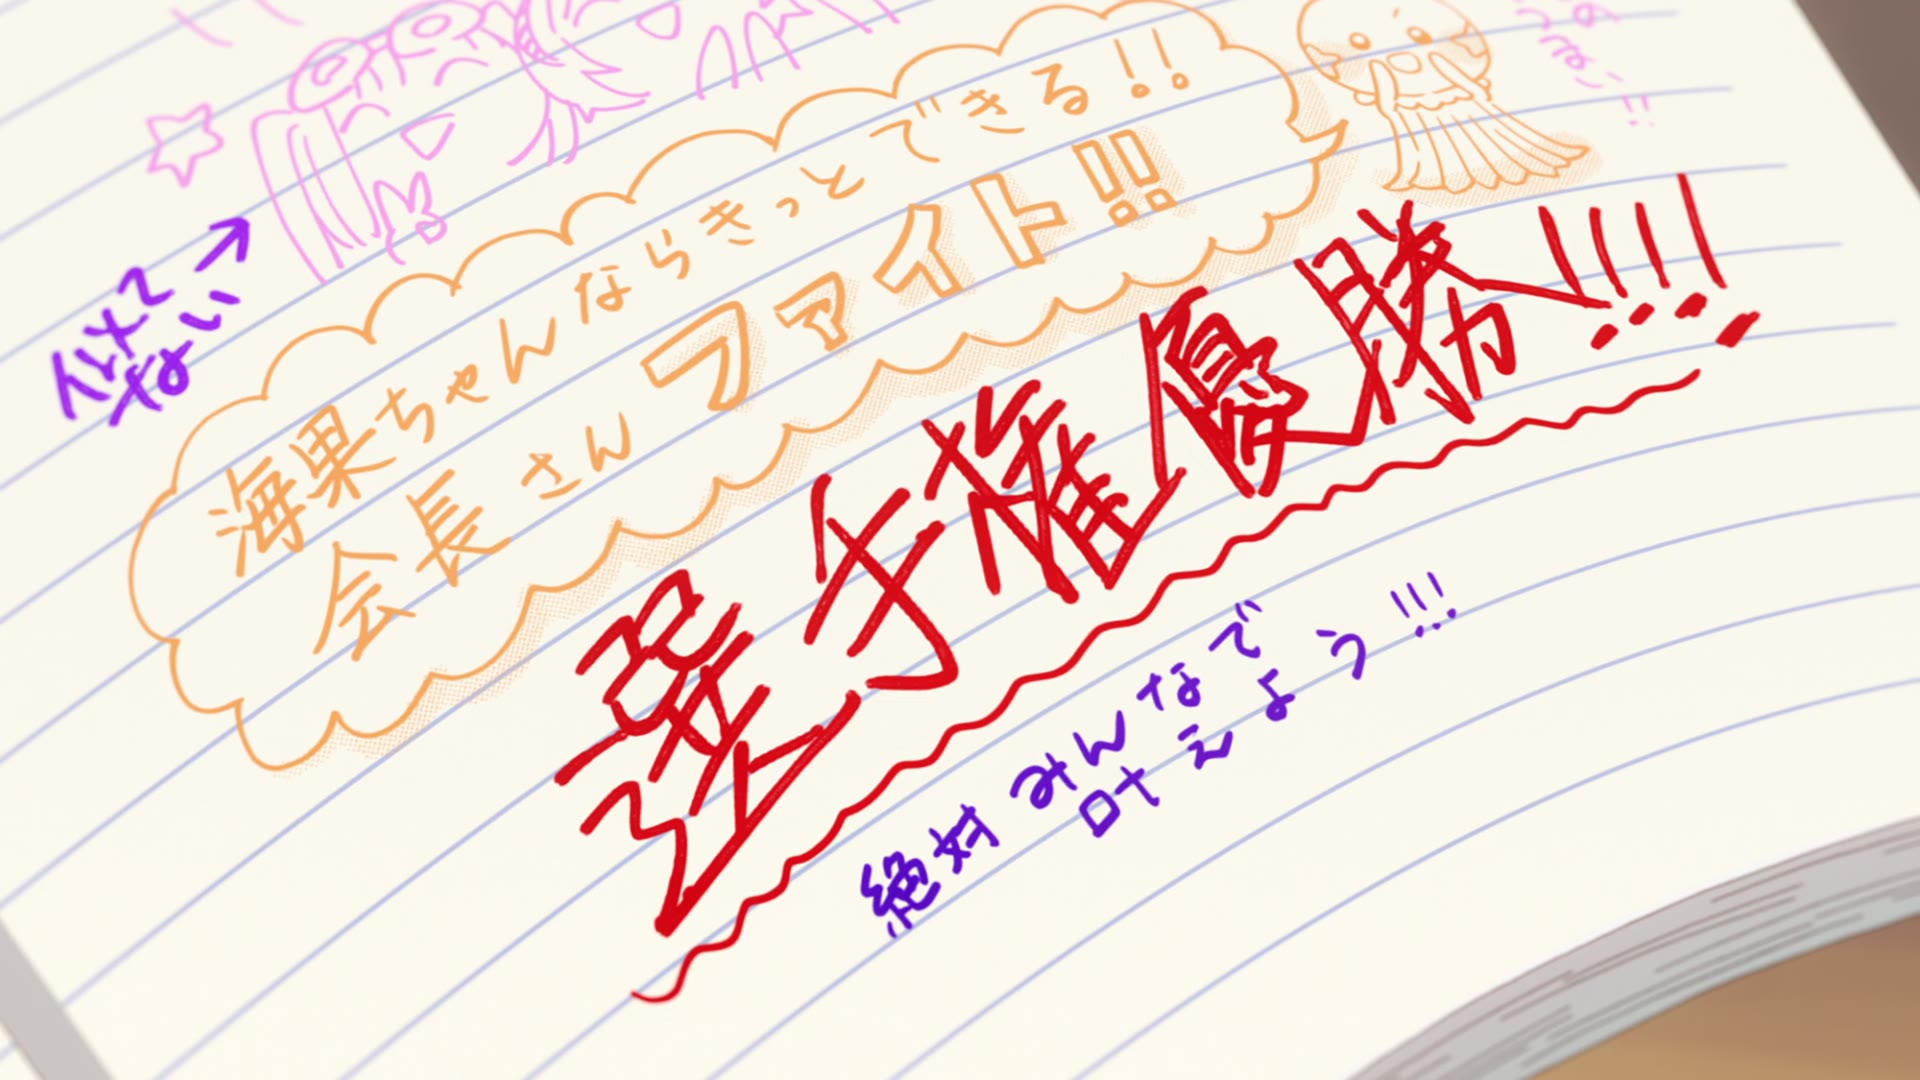 似て
ない
海果ちゃんならきっとできる!!
会長さん ファイト!!
選手権優勝!!!!
絶対みんなで
叶えよう!!!